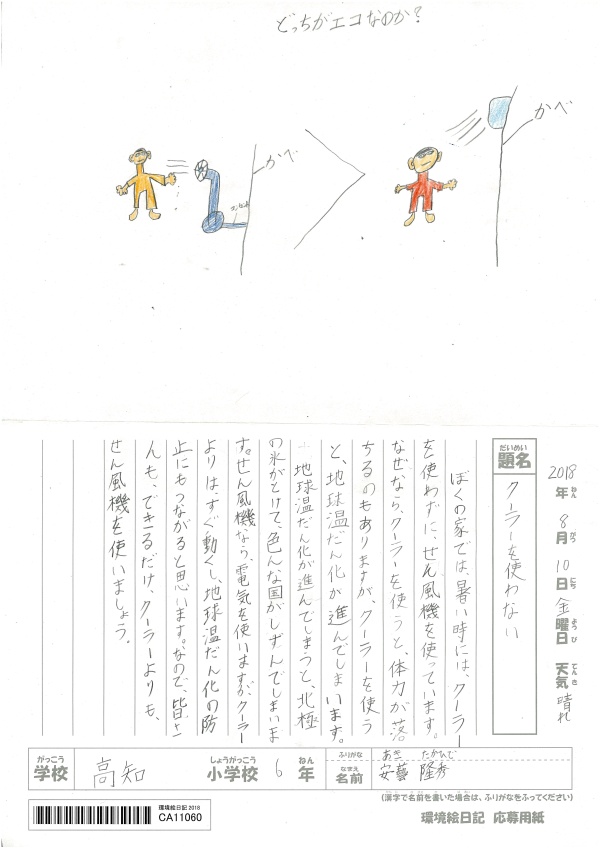 どっちがエコなのか?
かべ
かべ
2018年 8月 10日 金曜日 天気 晴れ
ねん がつ にち ようび てんき
だいめい
題名 クーラーを使わない
ぼくの家では、暑い時には、クーラー
を使わずに、せん風機を使っています。
なぜなら、クーラーを使うと、体力が落
ちるのもありますが、クーラーを使う
と、地球温だん化が進んでしまいます。
地球温だん化が進んでしまうと、北極
の氷がとけて、色んな国がしずんでしまいま
す。せん風機なら、電気を使いますが、クーラー
よりは、すぐ動くし、地球温だん化の防
止にもつながると思います。なので、皆さ
んも、できるだけ、クーラーよりも、
せん風機を使いましょう。
がっこう しょうがっこう ねん ふりがな あき たかひで
学校 高知 小学校 6 年 なまえ 名前 安藝 隆秀
(漢字で名前を書いた場合は、ふりがなをふってください)
環境絵日記 2018
CA11060
環境絵日記 応募用紙